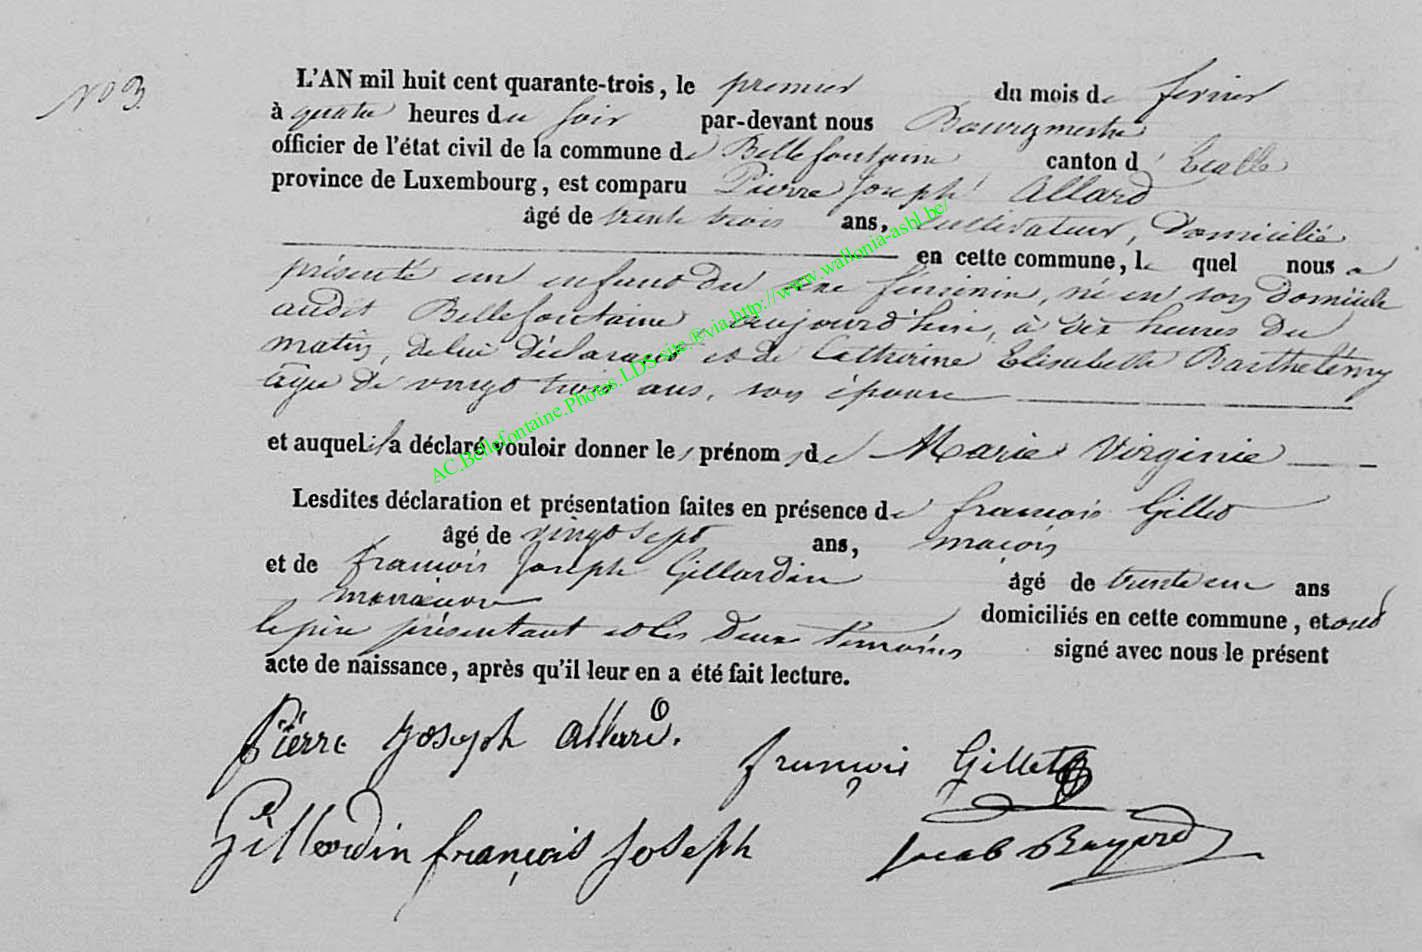 No 3.
L'AN mil huit cent quarante-trois, le premier du mois de fevrier
à quatre heures du soir par-devant nous Bourgmestre
officier de l'état civil de la commune de Bellefontaine canton d'Etalle
province de Luxembourg, est comparu Pierre Joseph Allard
âgé de trente trois ans, cultivateur, domicilié
en cette commune, le quel nous a
présenté un enfant du sexe féminin, né en son domicile
audit Bellefontaine aujourd'hui, à dix heures du
matin, de lui déclarant et de Catherine Elisabeth Barthelémy
âgée de vingt trois ans, son épouse
et auquel il a déclaré vouloir donner les prénoms de Marie Virginie
Lesdites déclaration et présentation faites en présence de françois Gillet
âgé de vingt sept ans, maçon
et de françois Joseph Gillardin âgé de trente un ans
domiciliés en cette commune, et ont
le père présentant et les deux témoins signé avec nous le présent
acte de naissance, après qu'il leur en a été fait lecture.
Pierre Joseph Allard.
françois Gillet
Gillardin françois Joseph
Jacob Bayard
AC.Bellefontaine.Photos.LDS.site.®via.http://www.wallonia-asbl.be/